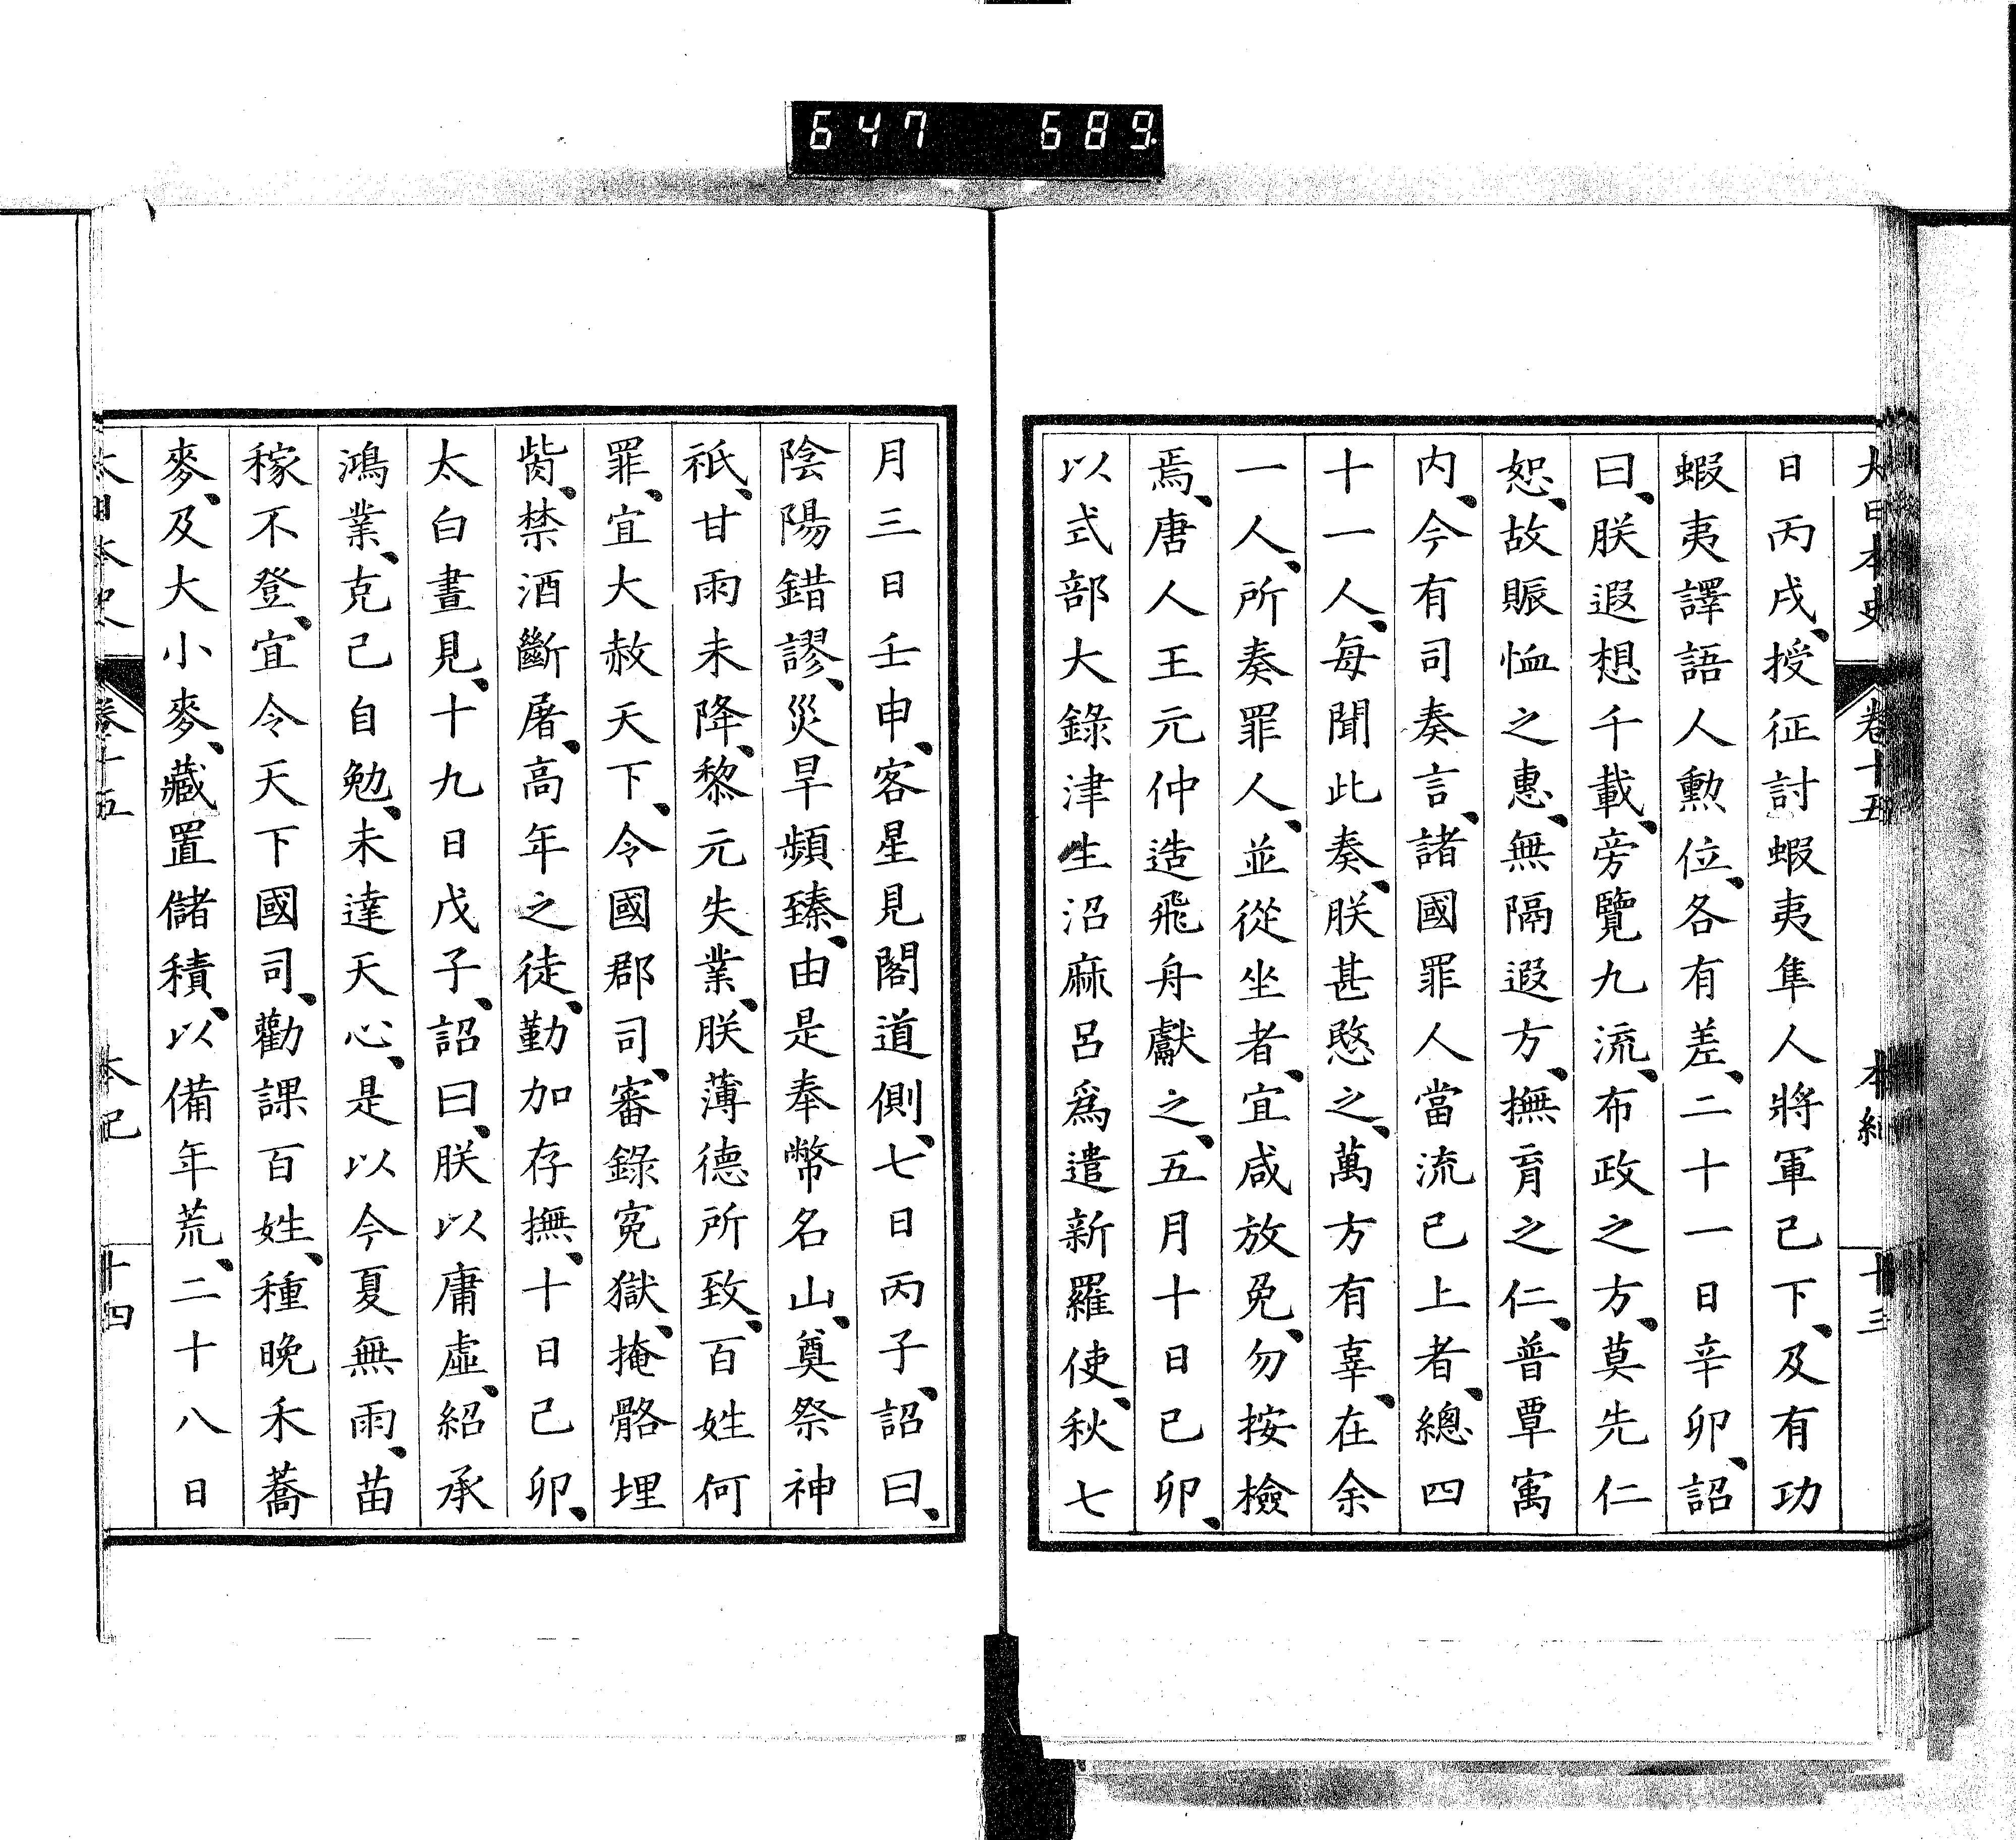 647 689.
大日本史 卷十五 本紀 十三
日丙戌、授征討蝦夷隼人將軍已下、及有功
蝦夷譯語人勲位、各有差、二十一日辛卯、詔
曰、朕遐想千載、旁覽九流、布政之方、莫先仁
恕、故賑恤之惠、無隔遐方、撫育之仁、普覃寓
内、今有司奏言、諸國罪人當流已上者、總四
十一人、每聞此奏、朕甚愍之、萬方有辜、在余
一人、所奏罪人、並從坐者、宜咸放免、勿按檢
焉、唐人王元仲造飛舟獻之、五月十日已卯、
以式部大錄津生沼麻呂爲遣新羅使、秋七
月三日壬申、客星見閣道側、七日丙子、詔曰、
陰陽錯謬、災旱頻臻、由是奉幣名山、奠祭神
祇、甘雨未降、黎元失業、朕薄德所致、百姓何
罪、宜大赦天下、令國郡司、審錄寃獄、掩骼埋
胔、禁酒斷屠、高年之徒、勤加存撫、十日己卯、
太白晝見、十九日戊子、詔曰、朕以庸虛、紹承
鴻業、克己自勉、未達天心、是以今夏無雨、苗
稼不登、宜令天下國司、勸課百姓、種晩禾蕎
麥、及大小麥、藏置儲積、以備年荒、二十八日
大日本史 卷十五 本紀 十四